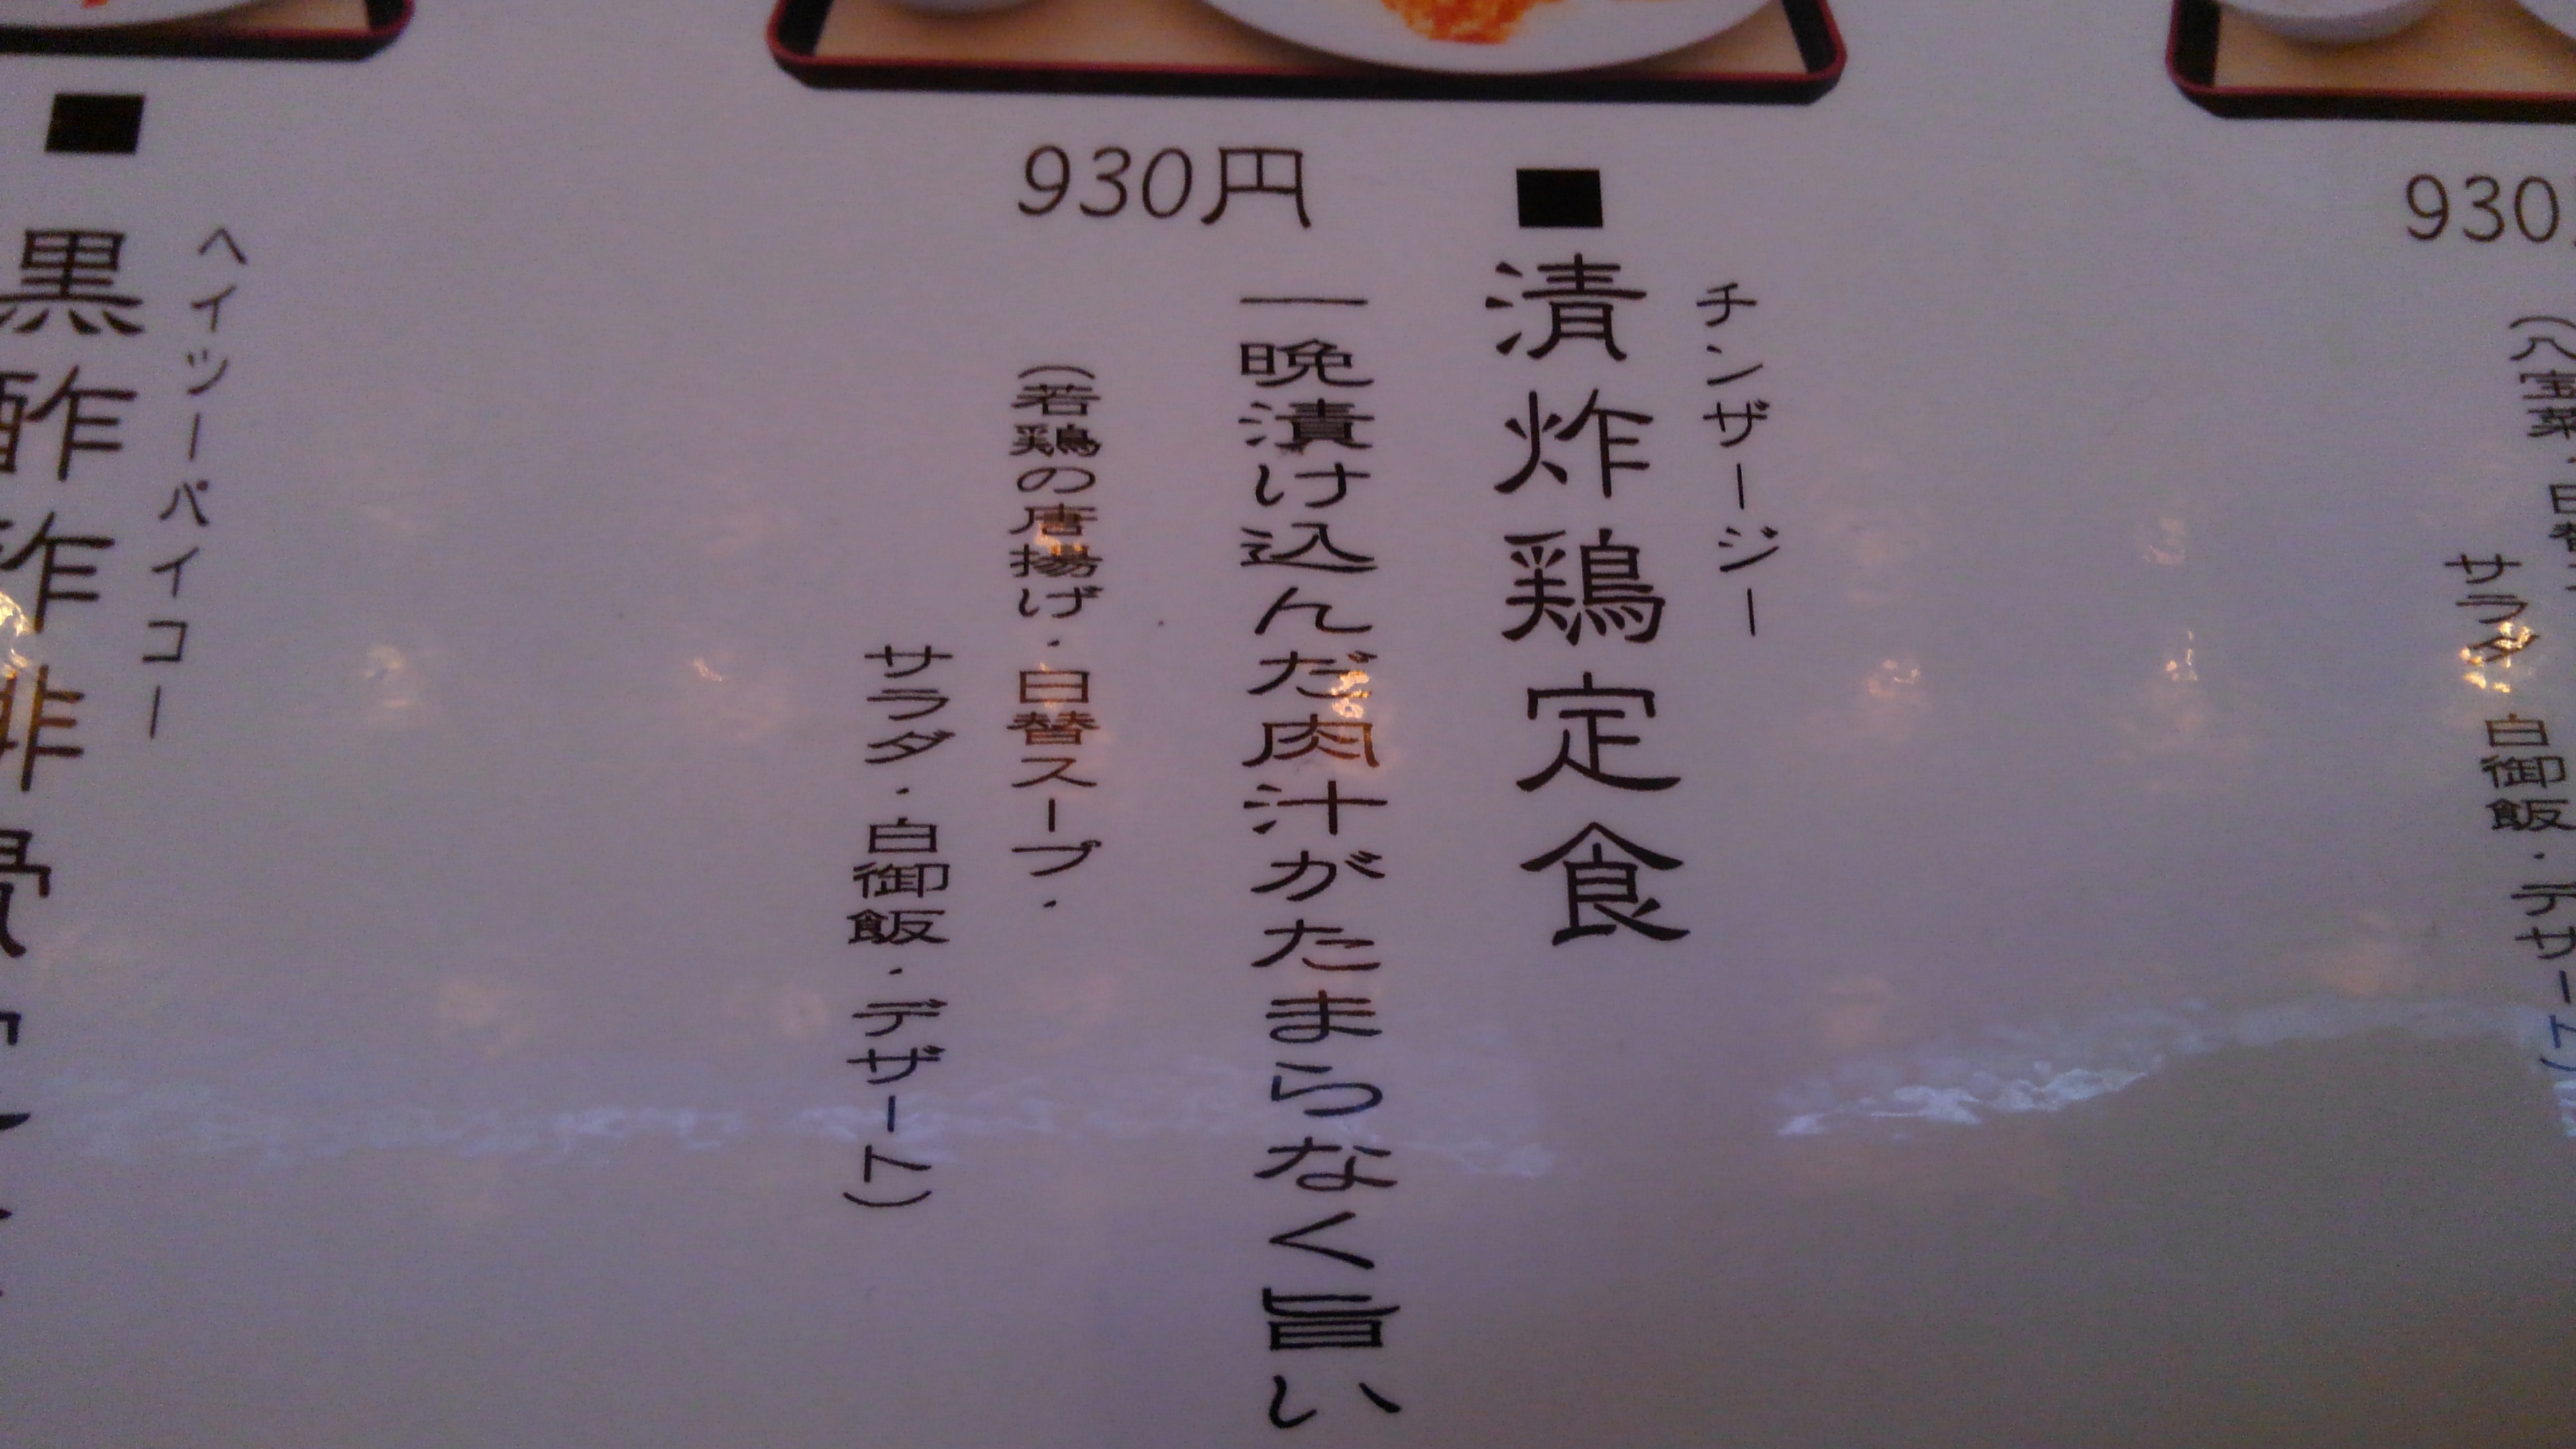 930
(八宝菜・日替
サラダ 白御飯・デザート)
チンザージー
■清炸鶏定食
930円
一晩漬け込んだ肉汁がたまらなく旨い
(若鶏の唐揚げ・日替スープ・
サラダ・白御飯・デザート)
ヘイツーパイコー
■黒酢炸排骨定